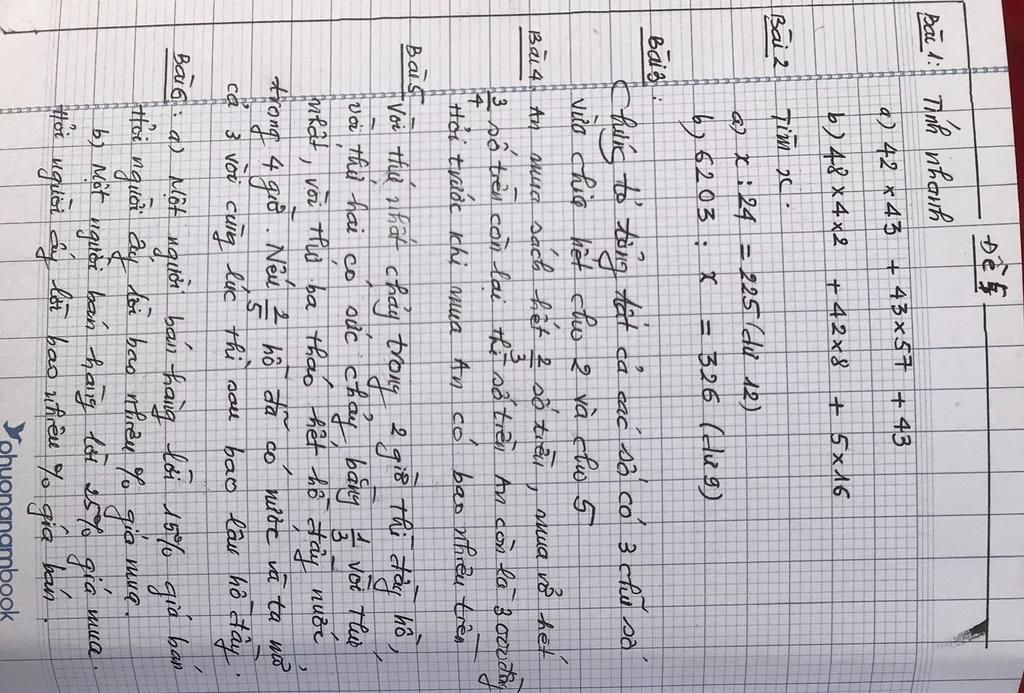 Đề 5
Bài 1: Tính nhanh
a) 42 x 43 + 43 x 57 + 43
b) 48 x 4 x 2 + 42 x 8 + 5 x 16
Bài 2 Tìm x.
a) x : 24 = 225 (dư 12)
b) 6203 : x = 326 (dư 9)
Bài 3:
Chứng tỏ tổng tất cả các số có 3 chữ số
vừa chia hết cho 2 và cho 5
Bài 4. An mua sách hết 2/3 số tiền, mua vở hết
3/4 số tiền còn lại thì số tiền An còn là 3000 đồng
Hỏi trước khi mua An có bao nhiêu tiền
Bài 5 Vòi thứ nhất chảy trong 2 giờ thì đầy hồ,
vòi thứ hai có sức chảy bằng 1/3 vòi thứ
nhất, vòi thứ ba tháo hết hồ đầy nước
trong 4 giờ. Nếu 2/5 hồ đã có nước và ta mở
cả 3 vòi cùng lúc thì sau bao lâu hồ đầy.
Bài 6: a) Một người bán hàng lời 15% giá bán
Hỏi người ấy lời bao nhiêu % giá mua.
b) Một người bán hàng lời 25% giá mua.
Hỏi người ấy lời bao nhiêu % giá bán.
phuonanambook